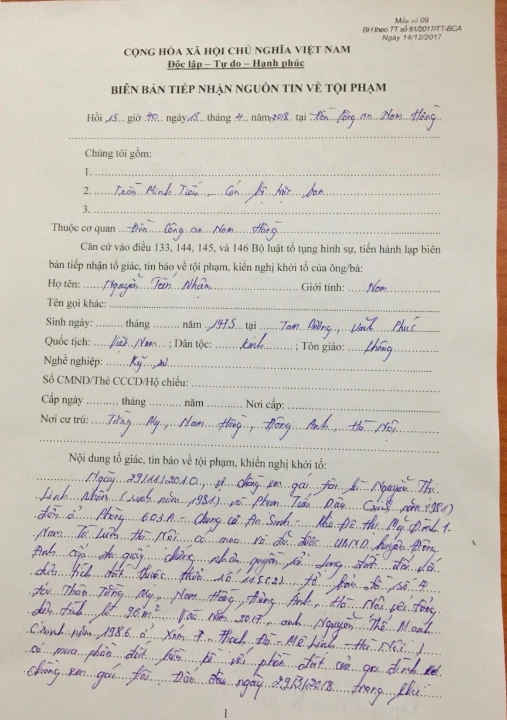 Mẫu số 09
BH theo TT số 61/2017/TT-BCA
Ngày 14/12/2017
CỘNG HÒA XÃ HỘI CHỦ NGHĨA VIỆT NAM
Độc lập – Tự do – Hạnh phúc
BIÊN BẢN TIẾP NHẬN NGUỒN TIN VỀ TỘI PHẠM
Hồi 15 giờ 40 ngày 18 tháng 4 năm 2018 tại Đồn Công an Nam Hồng
Chúng tôi gồm:
1.
2. Trần Minh Tiến, Cán bộ trực ban
3.
Thuộc cơ quan Đồn Công an Nam Hồng
Căn cứ vào điều 133, 144, 145, và 146 Bộ luật tố tụng hình sự, tiến hành lập biên
bản tiếp nhận tố giác, tin báo về tội phạm, kiến nghị khởi tố của ông/bà:
Họ tên: Nguyễn Tiến Nhận Giới tính: Nam
Tên gọi khác:
Sinh ngày: tháng năm 1975 tại Tam Dương, Vĩnh Phúc
Quốc tịch: Việt Nam; Dân tộc: Kinh; Tôn giáo: Không
Nghề nghiệp: Kỹ sư
Số CMND/Thẻ CCCD/Hộ chiếu:
Cấp ngày tháng năm Nơi cấp:
Nơi cư trú: Tằng My, Nam Hồng, Đông Anh, Hà Nội
Nội dung tố giác, tin báo về tội phạm, khiến nghị khởi tố:
Ngày 29/11/2010, vợ chồng em gái tôi là Nguyễn Thị
Linh Nhâm (sinh năm 1981) và Phạm Tiến (sinh năm 1981)
đến ở Phòng 603A - Chung cư An Sinh - Khu Đô thị Mỹ Đình 1
Nam Từ Liêm Hà Nội có mua và đã được UBND huyện Đông
Anh cấp giấy chứng nhận quyền sử dụng đất đối với
diện tích đất thuộc thửa số 115(2) tờ bản đồ số 4
tại Thôn Tằng My, Nam Hồng, Đông Anh, Hà Nội với tổng
diện tích là 90m². Vào năm 2017, anh Nguyễn Thế Mạnh
(sinh năm 1986 ở Xóm 7, Thạch Đà, Mê Linh - Hà Nội)
có mua phần đất liền kề với phần đất của gia đình
chồng em gái tôi. Đến đầu ngày 29/3/2018 trong khi
1